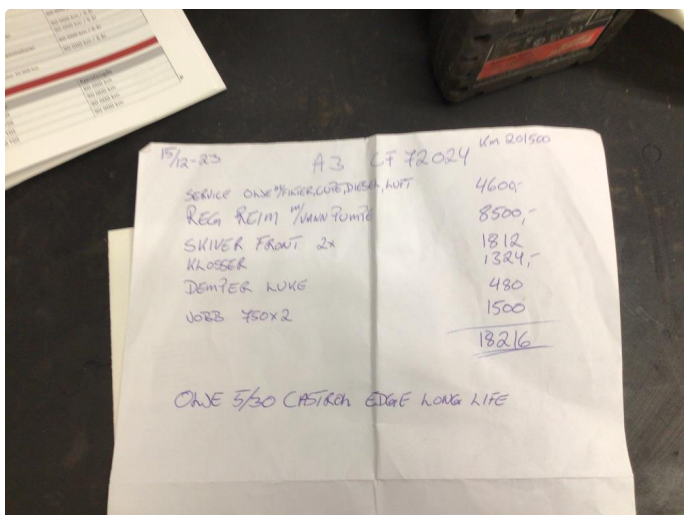 15/12-23
A3 CF 72024
Km 201500
SERVICE OLJE M/FILTER, CUPE, DIESEL, LUFT 4600,-
REG REIM M/VANN PUMPE 8500,-
SKIVER FRONT 2x 1812
KLOSSER 1324,-
DEMPER LUKE 480
JOBB 750x2 1500
18216
OLJE 5/30 CASTROL EDGE LONG LIFE